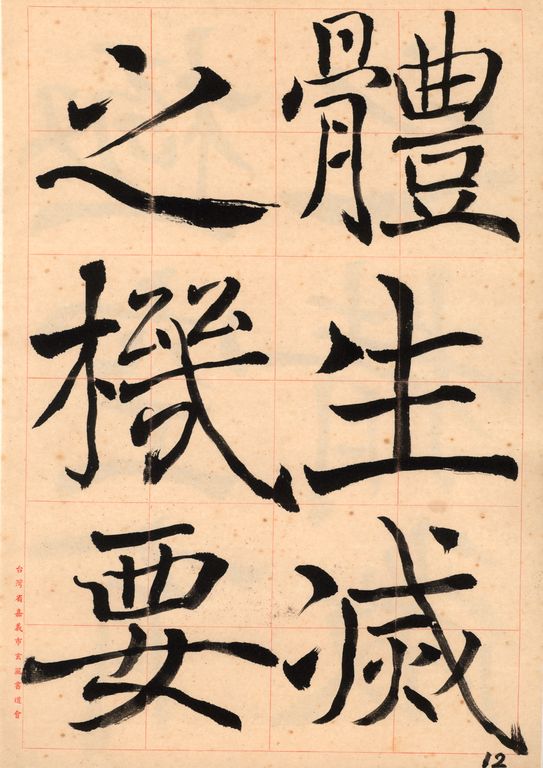 體生滅
之機要
台灣省嘉義市玄風書道會
12